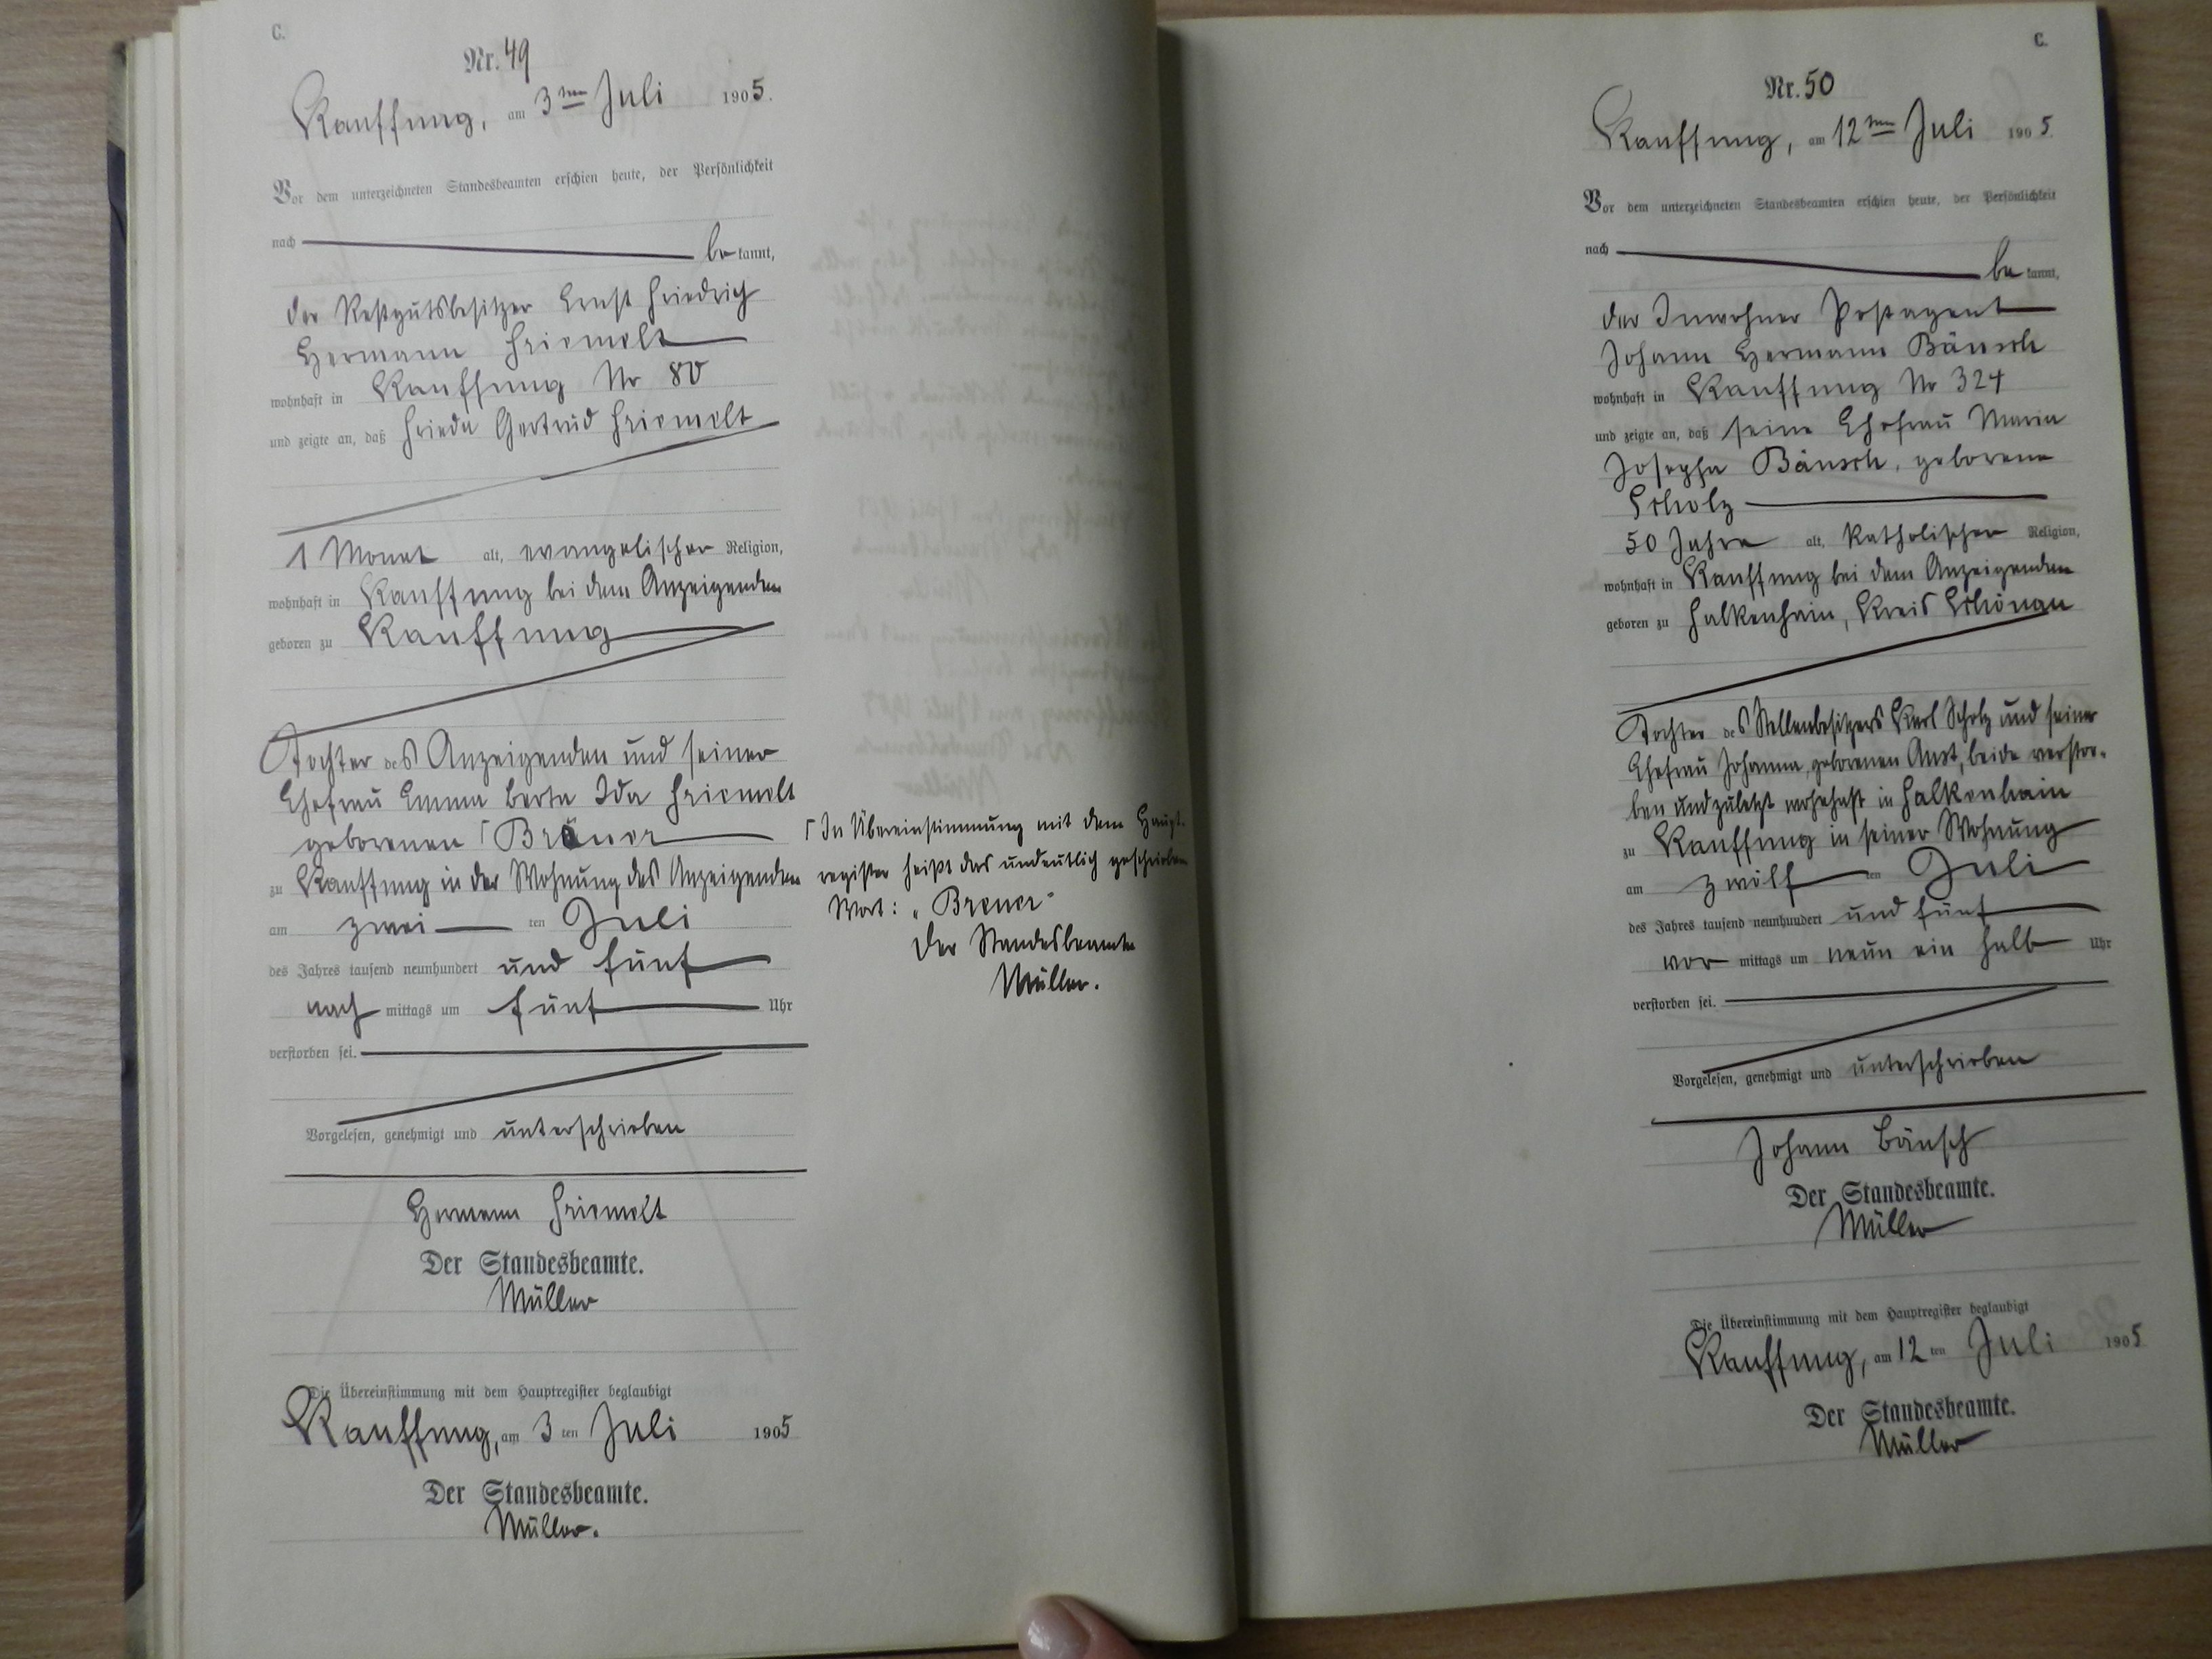 C.
Nr. 49
Kauffung, am 3ten Juli 1905.
Vor dem unterzeichneten Standesbeamten erschien heute, der Persönlichkeit
nach be kannt,
der Restgutsbesitzer Ernst Friedrich
Hermann Friemelt
wohnhaft in Kauffung Nr 80
und zeigte an, daß Frieda Gertrud Friemelt
1 Monat alt, evangelischer Religion,
wohnhaft in Kauffung bei dem Anzeigenden
geboren zu Kauffung
Tochter des Anzeigenden und seiner
Ehefrau Emma Berta Ida Friemelt
geborenen Brener
zu Kauffung in der Wohnung des Anzeigenden
am zwei ten Juli
des Jahres tausend neunhundert und fünf
nach mittags um fünf Uhr
verstorben sei.
Vorgelesen, genehmigt und unterschrieben
Hermann Friemelt
Der Standesbeamte.
Müller
Die Übereinstimmung mit dem Hauptregister beglaubigt
Kauffung, am 3 ten Juli 1905
Der Standesbeamte.
Müller.
In Übereinstimmung mit dem Haupt-
register heißt das undeutlich geschriebene
Wort: „Brener"
Der Standesbeamte
Müller.
C.
Nr. 50
Kauffung, am 12ten Juli 1905.
Vor dem unterzeichneten Standesbeamten erschien heute, der Persönlichkeit
nach be kannt,
der Inwohner Postagent
Johann Hermann Bänsch
wohnhaft in Kauffung Nr 324
und zeigte an, daß seine Ehefrau Maria
Josepha Bänsch, geborene
Scholz
50 Jahre alt, katholischer Religion,
wohnhaft in Kauffung bei dem Anzeigenden
geboren zu Falkenhain, Kreis Schönau
Tochter des Stellenbesitzers Karl Scholz und seiner
Ehefrau Johanna, geborenen Anst, beide verstor-
ben und zuletzt wohnhaft in Falkenhain
zu Kauffung in seiner Wohnung
am zwölf ten Juli
des Jahres tausend neunhundert und fünf
vor mittags um neun ein halb Uhr
verstorben sei.
Vorgelesen, genehmigt und unterschrieben
Johann Bänsch
Der Standesbeamte.
Müller
Die Übereinstimmung mit dem Hauptregister beglaubigt
Kauffung, am 12 ten Juli 1905
Der Standesbeamte.
Müller